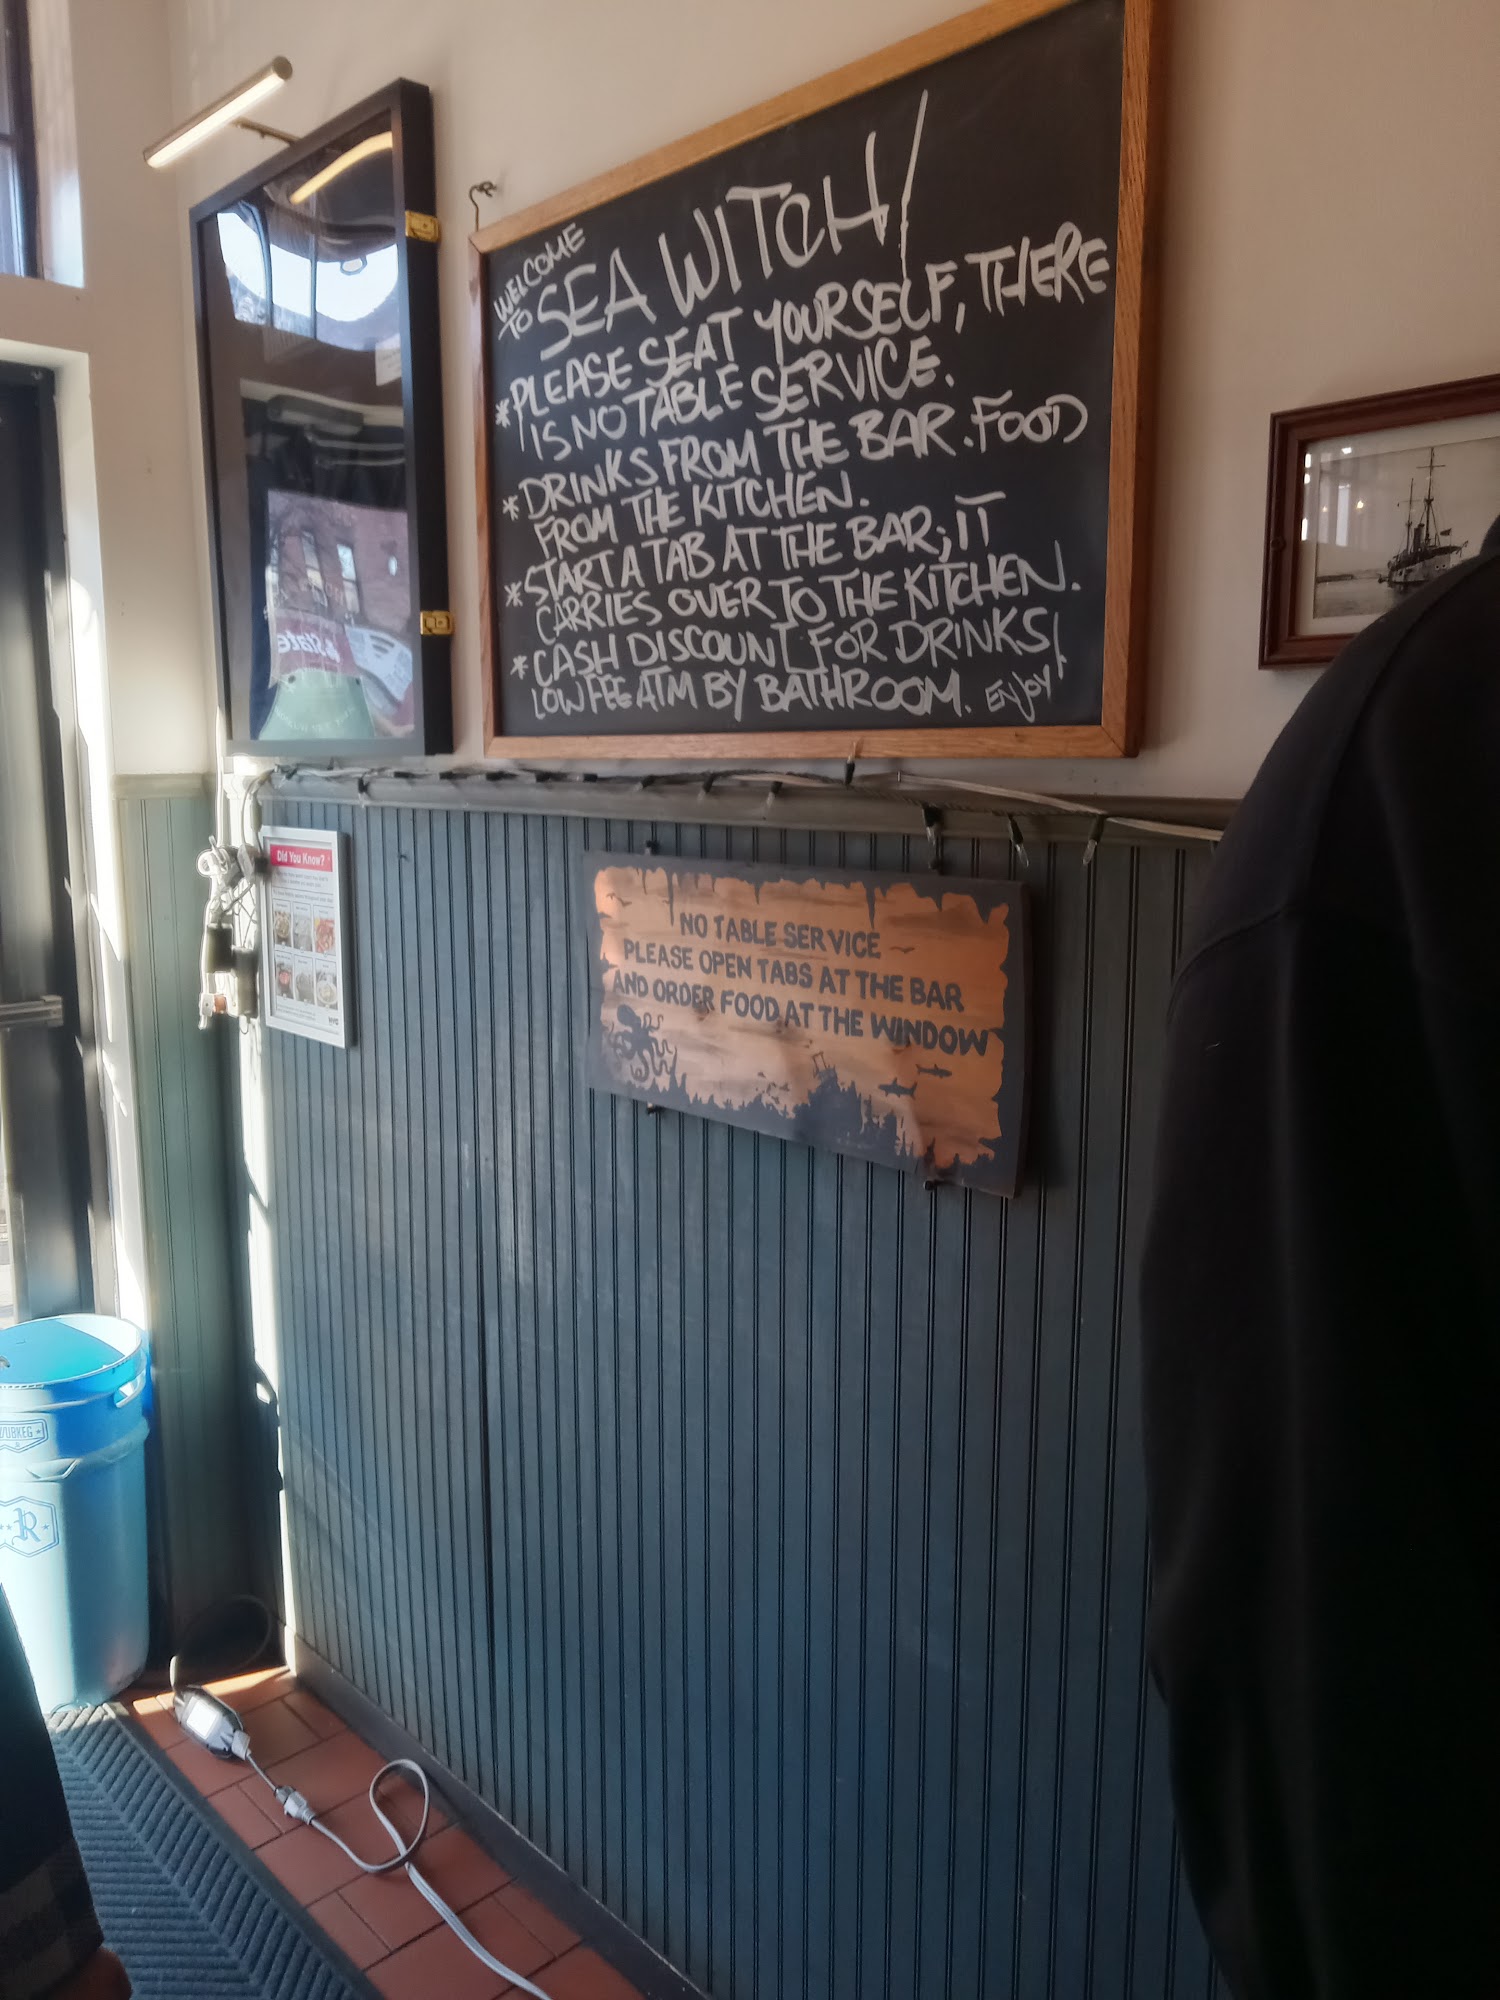 WELCOME
TO SEA WITCH!
* PLEASE SEAT YOURSELF, THERE
IS NO TABLE SERVICE.
* DRINKS FROM THE BAR. FOOD
FROM THE KITCHEN.
* START A TAB AT THE BAR; IT
CARRIES OVER TO THE KITCHEN.
* CASH DISCOUNT FOR DRINKS!
LOW FEE ATM BY BATHROOM. ENJOY!
Did You Know?
NYC
NO TABLE SERVICE
PLEASE OPEN TABS AT THE BAR
AND ORDER FOOD AT THE WINDOW
R